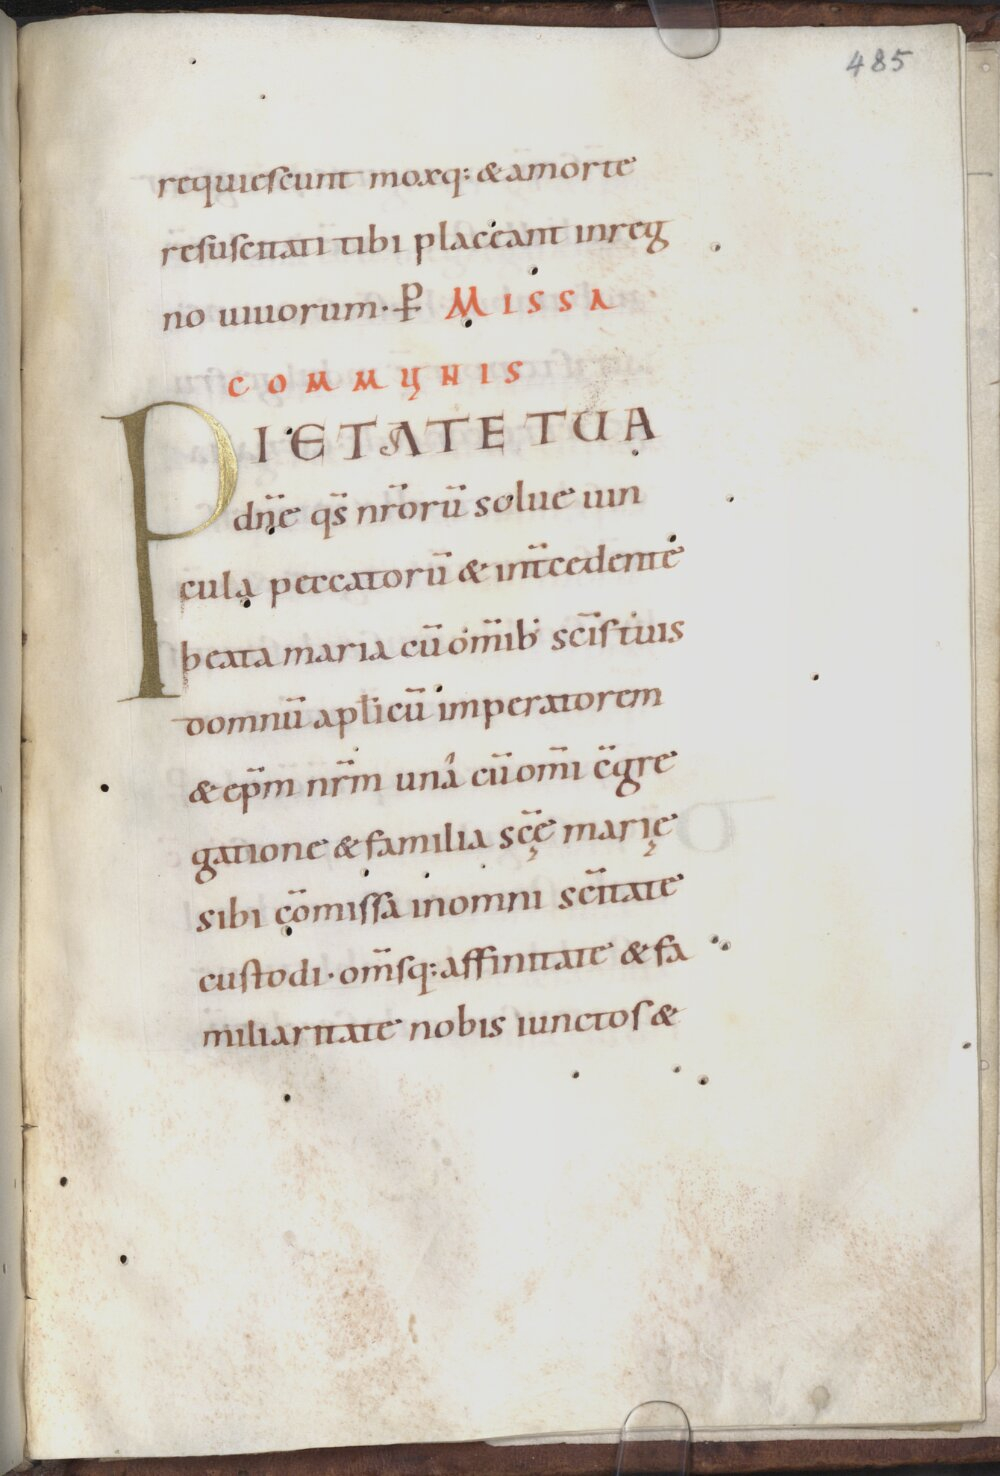 485
requiescunt moxq: & amorte
resuscitati tibi placeant inreg
no uiuorum · ꝑ MISSA
COMMUNIS
PIETATE TUA
dn̄e qs̄ nr̄orū solue uin
cula peccatorū & int̄cedente
beata maria cū om̄ib; sc̄is tuis
domnū aplicū imperatorem
& ep̄m nr̄m unā cū om̄i c̄gre
gatione & familia sc̄ę marię
sibi c̄omissa in omni sc̄itate
custodi · om̄sq: affinitate & fa
miliaritate nobis iunctos &